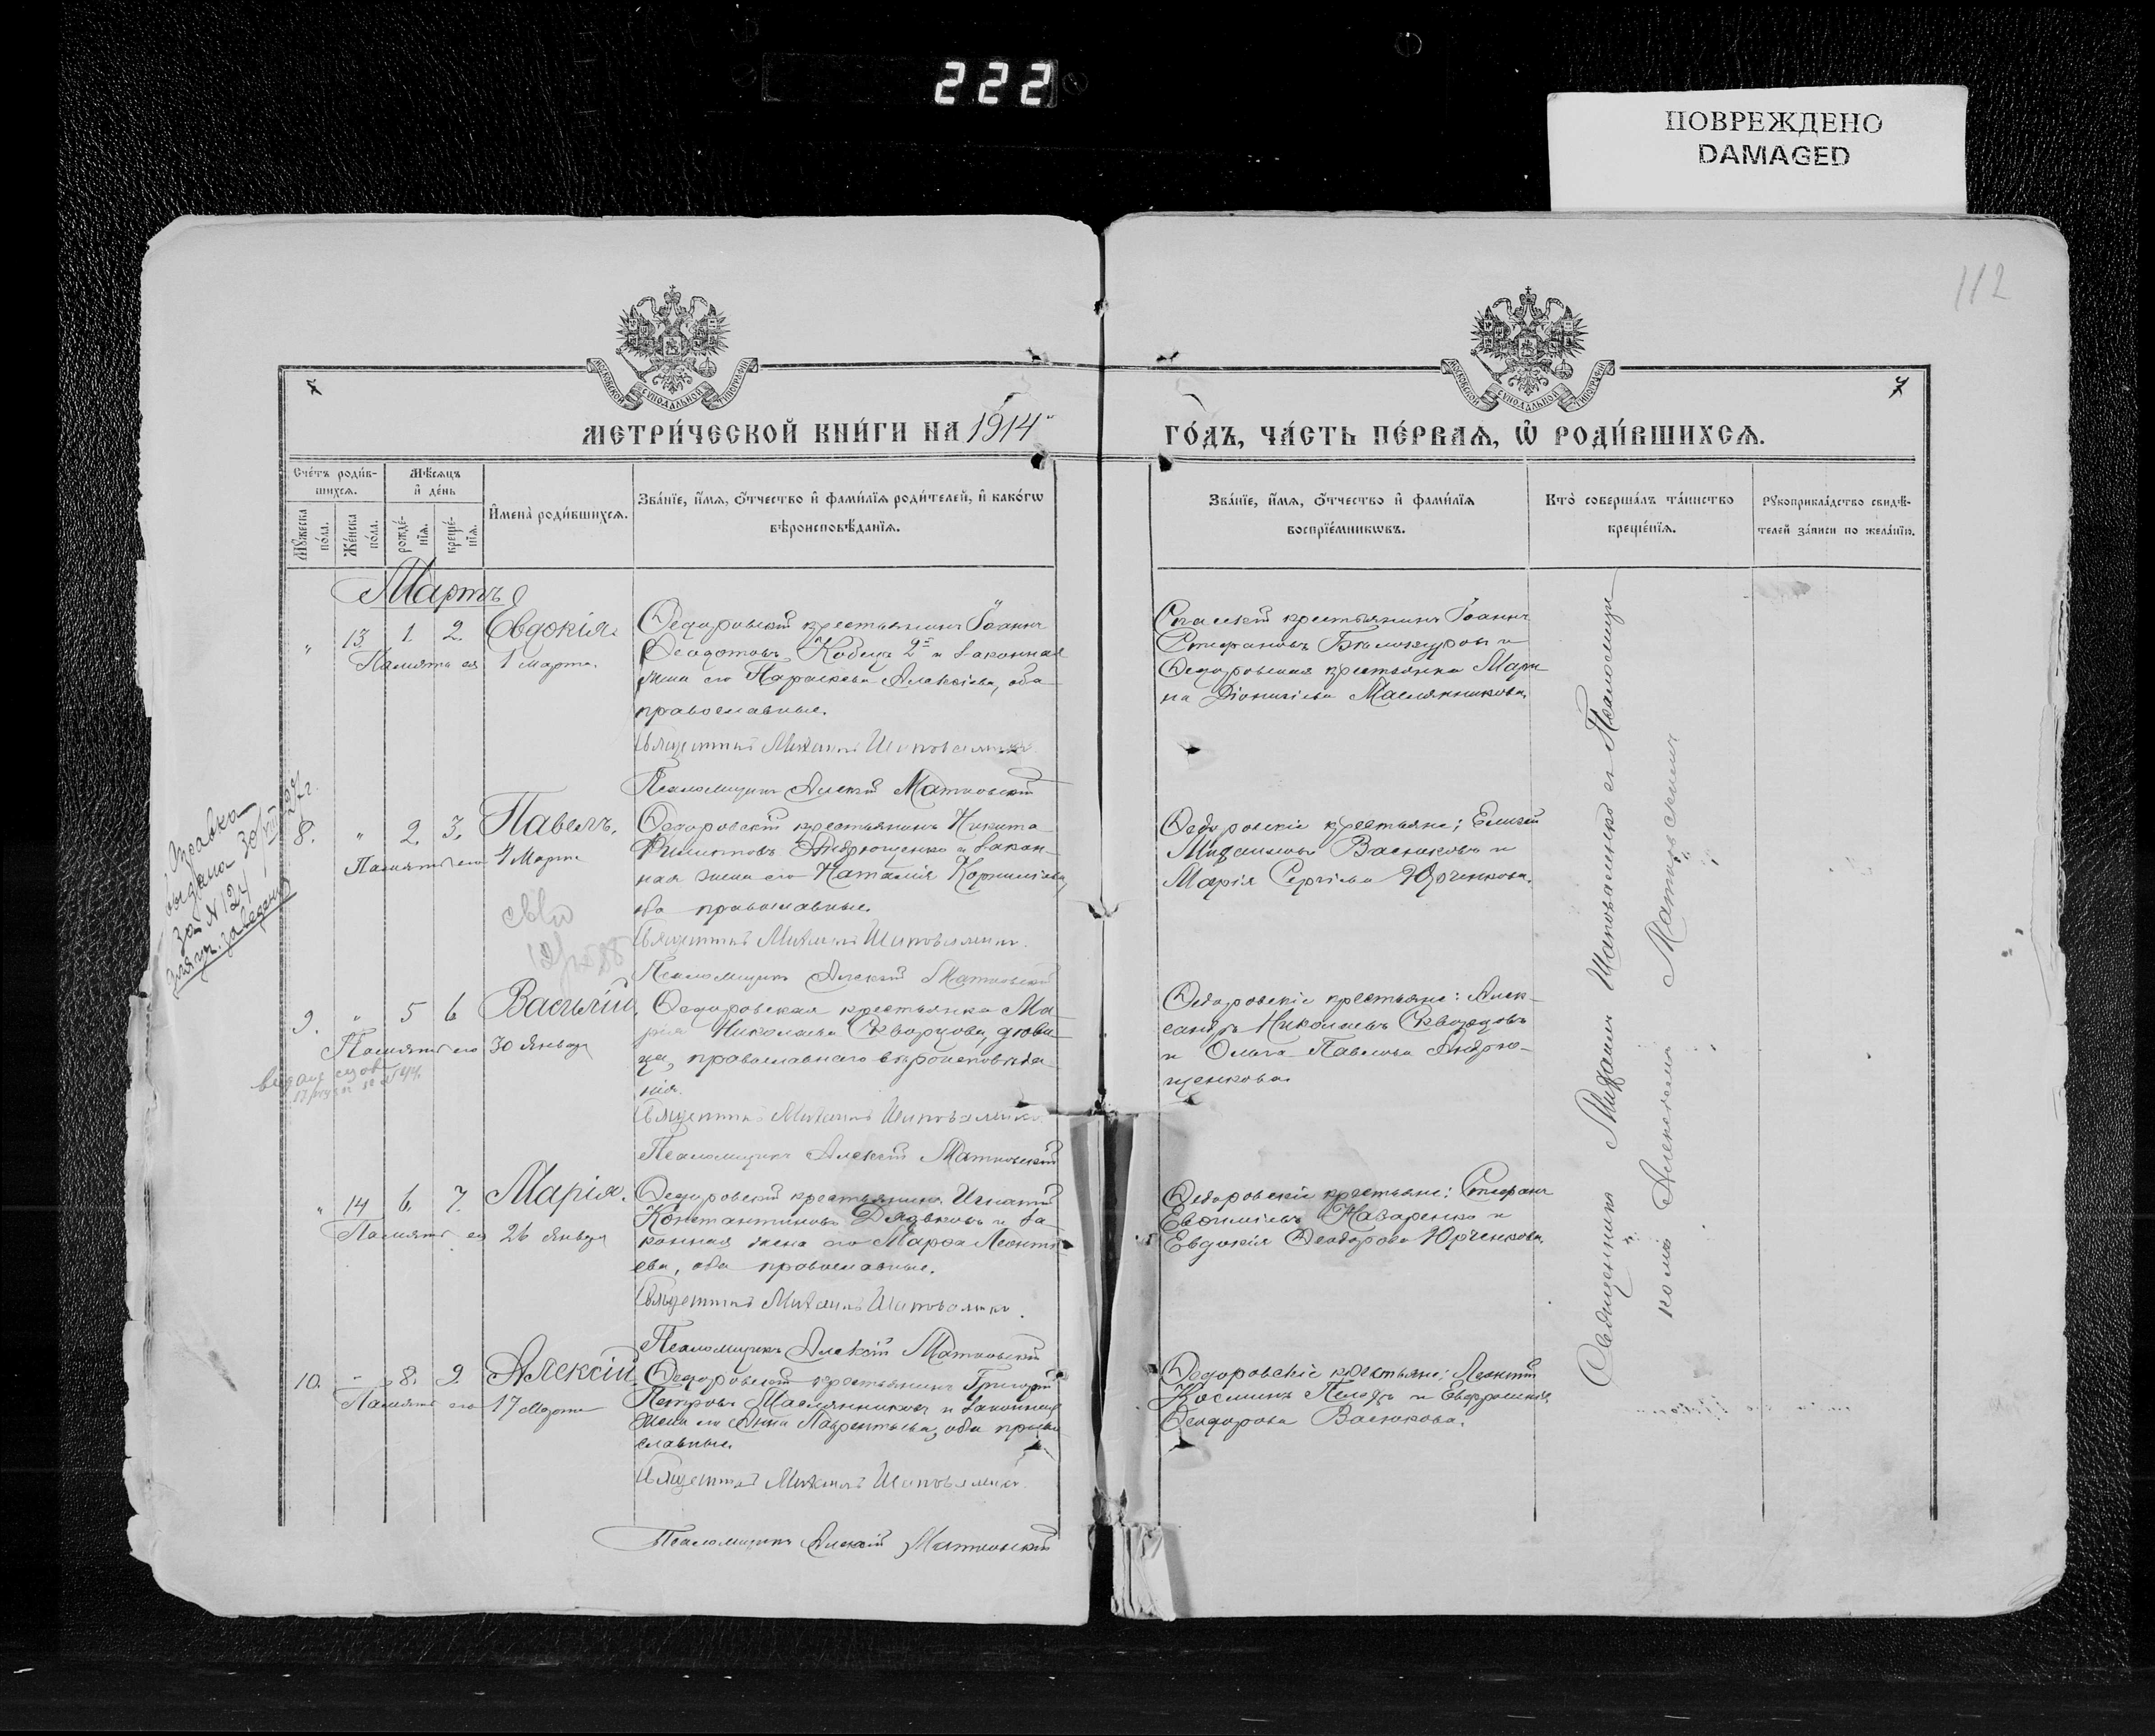 222
ПОВРЕЖДЕНО
DAMAGED
112
МОСКОВСКОЙ СѴНОДАЛЬНОЙ ТИПОГРАФІИ
МОСКОВСКОЙ СѴНОДАЛЬНОЙ ТИПОГРАФІИ
7
7
МЕТРИ́ЧЕСКОЙ КНИ́ГИ НА 1914
ГО́ДЪ, ЧА́СТЬ ПЕ́РВАѦ, Ѡ҆ РОДИ́ВШИХСѦ.
Сче́тъ роди́в-
шихсѧ.
Мꙋ́жеска по́ла.
Же́нска по́ла.
Мѣ́сѧцъ
и҆ де́нь
рожде́-
нїѧ.
креще́-
нїѧ.
И҆мена̀ роди́вшихсѧ.
Зва́нїе, и҆́мѧ, ѻ҆́тчество и҆ фами́лїѧ роди́телей, и҆ како́гѡ
вѣроисповѣ́данїѧ.
Зва́нїе, и҆́мѧ, ѻ҆́тчество и҆ фами́лїѧ
воспрїе́мникѡвъ.
Кто̀ соверша́лъ та́инство
креще́нїѧ.
Рꙋкоприкла́дство свидѣ́-
телей за́писи по жела́нїю.
Мартъ
" 13. 1. 2. Евдокія.
Память ея 1 марта.
Ѳедоровскій крестьянинъ Іоаннъ
Ѳеодотовъ Кобецъ 2й и законная
жена его Параскева Алексіева, оба
православные.
Священникъ Михаилъ Шаповаленко
Псаломщикъ Алексій Матковскій
Спасскій крестьянинъ Іоаннъ
Стефановъ Бѣлокуровъ и
Ѳедоровская крестьянка Мари-
на Діонисіева Маслянникова.
8. " 2. 3. Павелъ.
Память его 4 Марта
Ѳедоровскій крестьянинъ Никита
Филиповъ Андрющенко и закон-
ная жена его Наталія Корниліева,
оба православные.
Священникъ Михаилъ Шаповаленко
Псаломщикъ Алексій Матковскій
Ѳедоровскіе крестьяне: Елисей
Михаиловъ Васюковъ и
Марія Сергіева Юрченкова.
Справка
выдана 30/VIII 27 г.
за № 124
9. " 5 6 Василій.
Память его 30 Января
Ѳедоровская крестьянка Ма-
рія Николаева Скворцова, дѣви-
ца, православнаго вѣроисповѣда-
нія.
Священникъ Михаилъ Шаповаленко
Псаломщикъ Алексій Матковскій
Ѳедоровскіе крестьяне: Алек-
сандръ Николаевъ Скворцовъ
и Ольга Павлова Андрю-
щенкова.
" 14 6. 7. Марія.
Память ея 26 Января
Ѳедоровскій крестьянинъ Игнатій
Константиновъ Дядьковъ и за-
конная жена его Марѳа Леонть-
ева, оба православные.
Священникъ Михаилъ Шаповаленко.
Псаломщикъ Алексій Матковскій
Ѳедоровскіе крестьяне: Стефанъ
Евѳиміевъ Назаренко и
Евдокія Ѳеодорова Юрченкова.
10. " 8. 9. Алексій.
Память его 17 Марта
Ѳедоровскій крестьянинъ Григорій
Петровъ Маслянниковъ и законная
жена его Анна Лаврентьева, оба право-
славные.
Священникъ Михаилъ Шаповаленко.
Псаломщикъ Алексій Матковскій
Ѳедоровскіе крестьяне: Леонтій
Косминъ и Евфросинія
Ѳеодорова Васюкова.
Священникъ Михаилъ Шаповаленко съ Псаломщи-
комъ Алексіемъ Матковскимъ